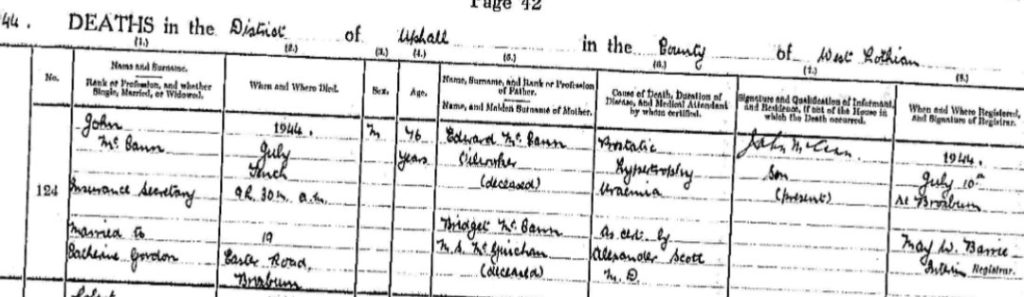 Page 42
44. DEATHS in the District of Uphall in the County of West Lothian
(1.) (2.) (3.) (4.) (5.) (6.) (7.) (8.)
No.
Name and Surname.
Rank or Profession, and whether
Single, Married, or Widowed.
When and Where Died.
Sex.
Age.
Name, Surname, and Rank or Profession
of Father.
Name, and Maiden Surname of Mother.
Cause of Death, Duration of
Disease, and Medical Attendant
by whom certified.
Signature and Qualification of Informant,
and Residence, if out of the House in
which the Death occurred.
When and Where Registered,
and Signature of Registrar.
124
John
McCann
Insurance Secretary
Married to
Catherine Gordon
1944.
July
Tenth
9h. 30m. a.m.
19
Easter Road,
Broxburn
M
76
years
Edward McCann
Oilworker
(deceased)
Bridget McCann
M.S. McGuichan
(deceased)
Prostatic
Hypertrophy
Uraemia
As cert. by
Alexander Scott
M.D.
John McCann.
Son
(present)
1944.
July 10th
At Broxburn
May W. Barrie
Interim Registrar.